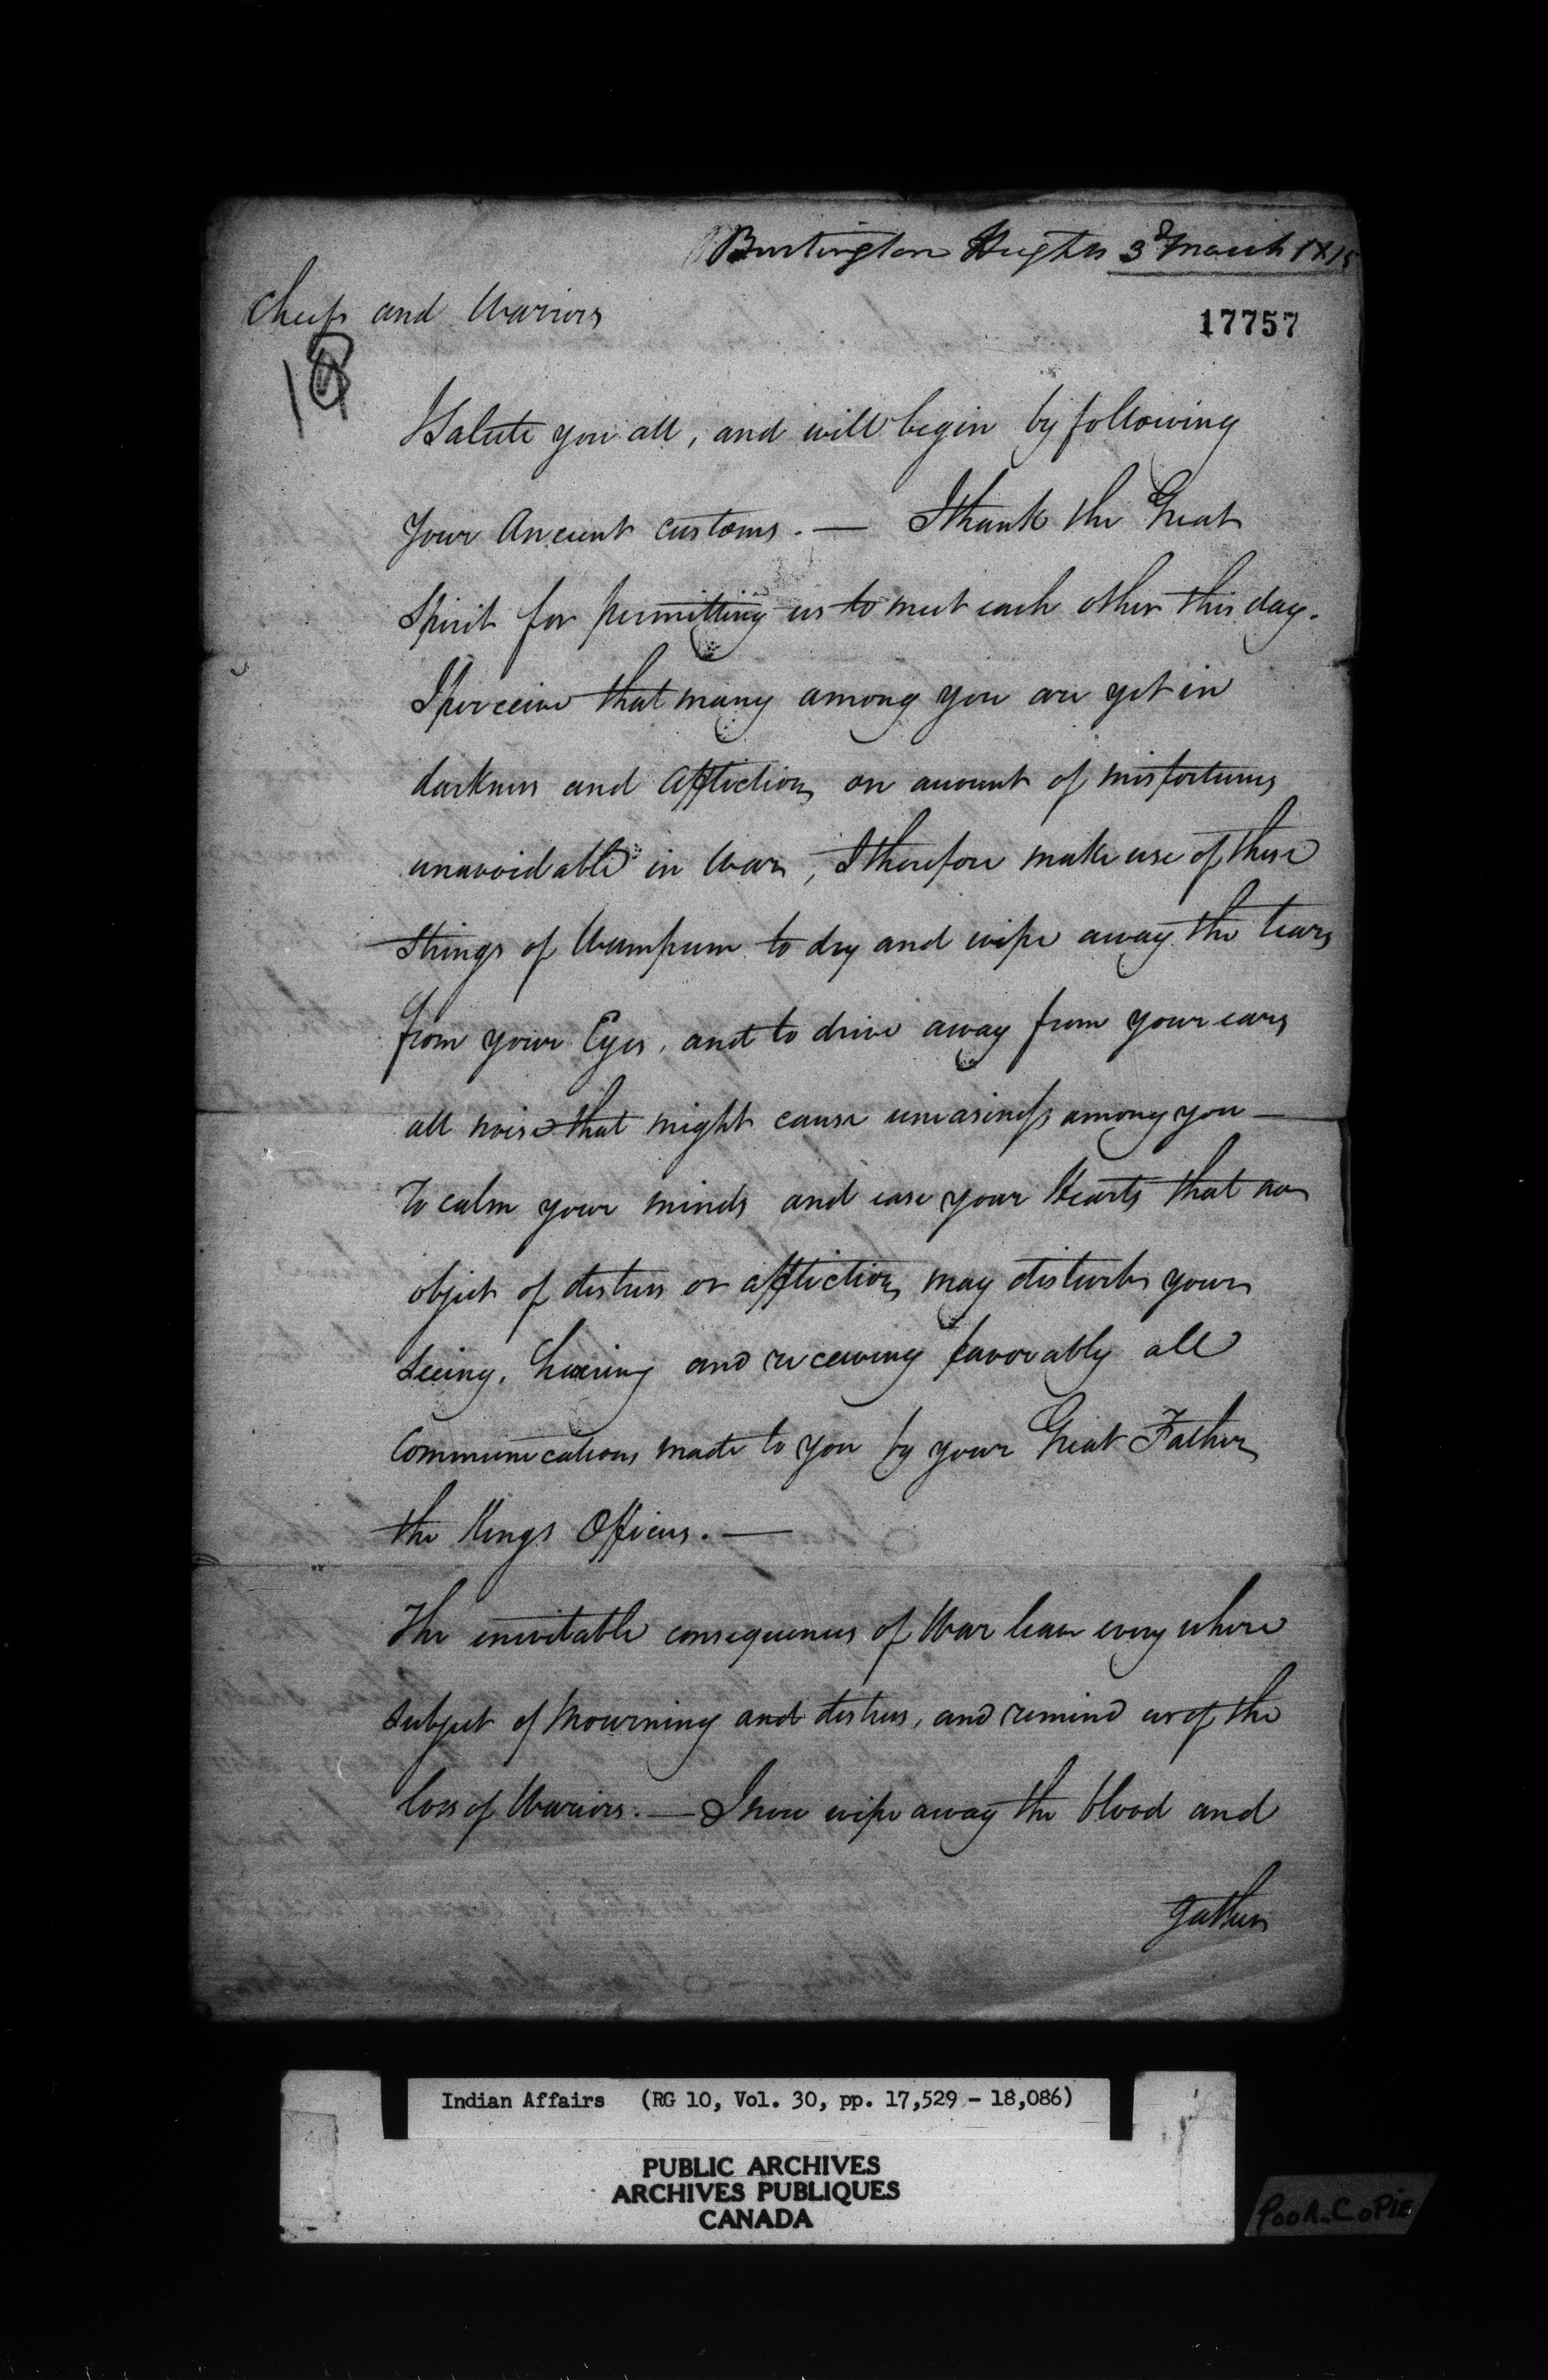 Burlington Heights 3d March 1815
Cheifs and Warriors
17757
I Salute you all, and will begin by following
your Ancient customs. — I thank the Great
Spirit for permitting us to meet each other this day.
I perceive that many among you are yet in
darkness and affliction on account of misfortunes
unavoidable in War, I therefore make use of these
Strings of Wampum to dry and wipe away the tears
from your Eyes, and to drive away from your ears
all noise that might cause uneasiness among you —
To calm your minds and ease your Hearts that no
object of distress or affliction may disturb your
seeing, hearing and receiving favorably all
Communications made to you by your Great Father
the Kings Officers. —
The inevitable consequences of War leave every where
subject of Mourning and distress, and remind us of the
loss of Warriors. — I now wipe away the blood and
gather
Indian Affairs (RG 10, Vol. 30, pp. 17,529 - 18,086)
PUBLIC ARCHIVES
ARCHIVES PUBLIQUES
CANADA
POOR COPIE